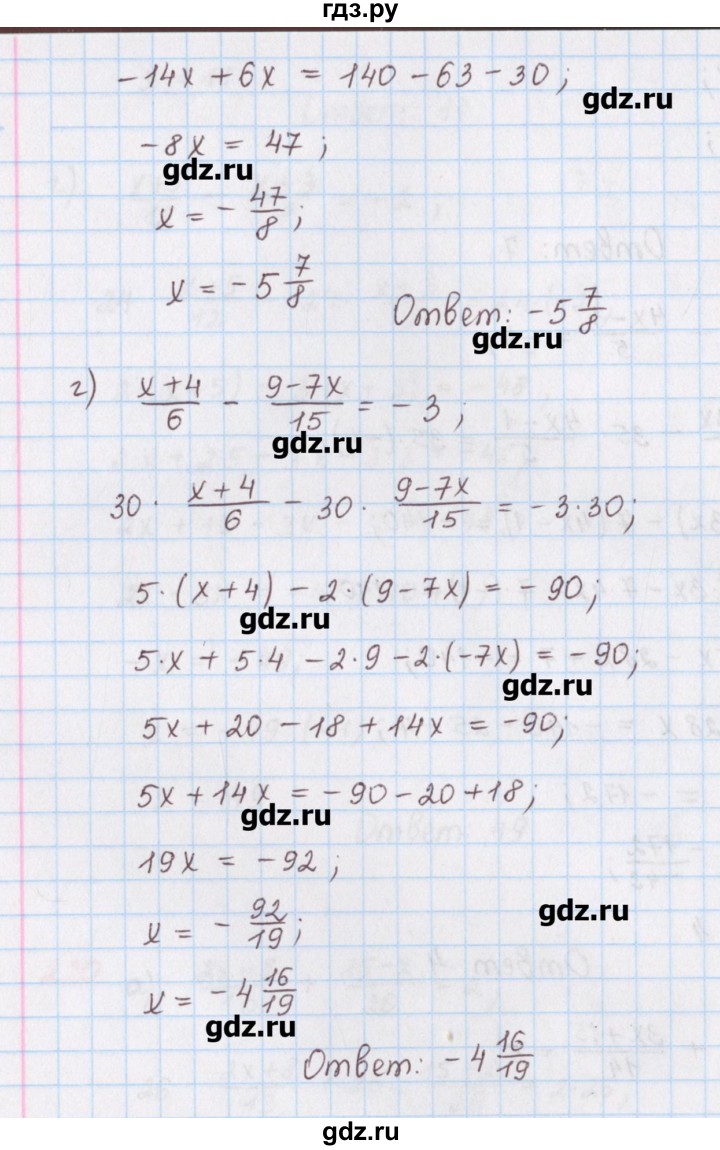 гдз.ру
-14x + 6x = 140 - 63 - 30;
gdz.ru
-8x = 47;
gdz.ru
x = - 47/8;
x = -5 7/8
Ответ: -5 7/8
gdz.ru
г) (x+4)/6 - (9-7x)/15 = -3;
gdz.ru
30· (x+4)/6 - 30· (9-7x)/15 = -3·30;
5·(x+4) - 2·(9-7x) = -90;
gdz.ru
5·x + 5·4 - 2·9 - 2·(-7x) = -90;
gdz.ru
5x + 20 - 18 + 14x = -90;
5x + 14x = -90 - 20 + 18;
gdz.ru
19x = -92;
gdz.ru
x = - 92/19;
x = -4 16/19
gdz.ru
Ответ: -4 16/19
gdz.ru